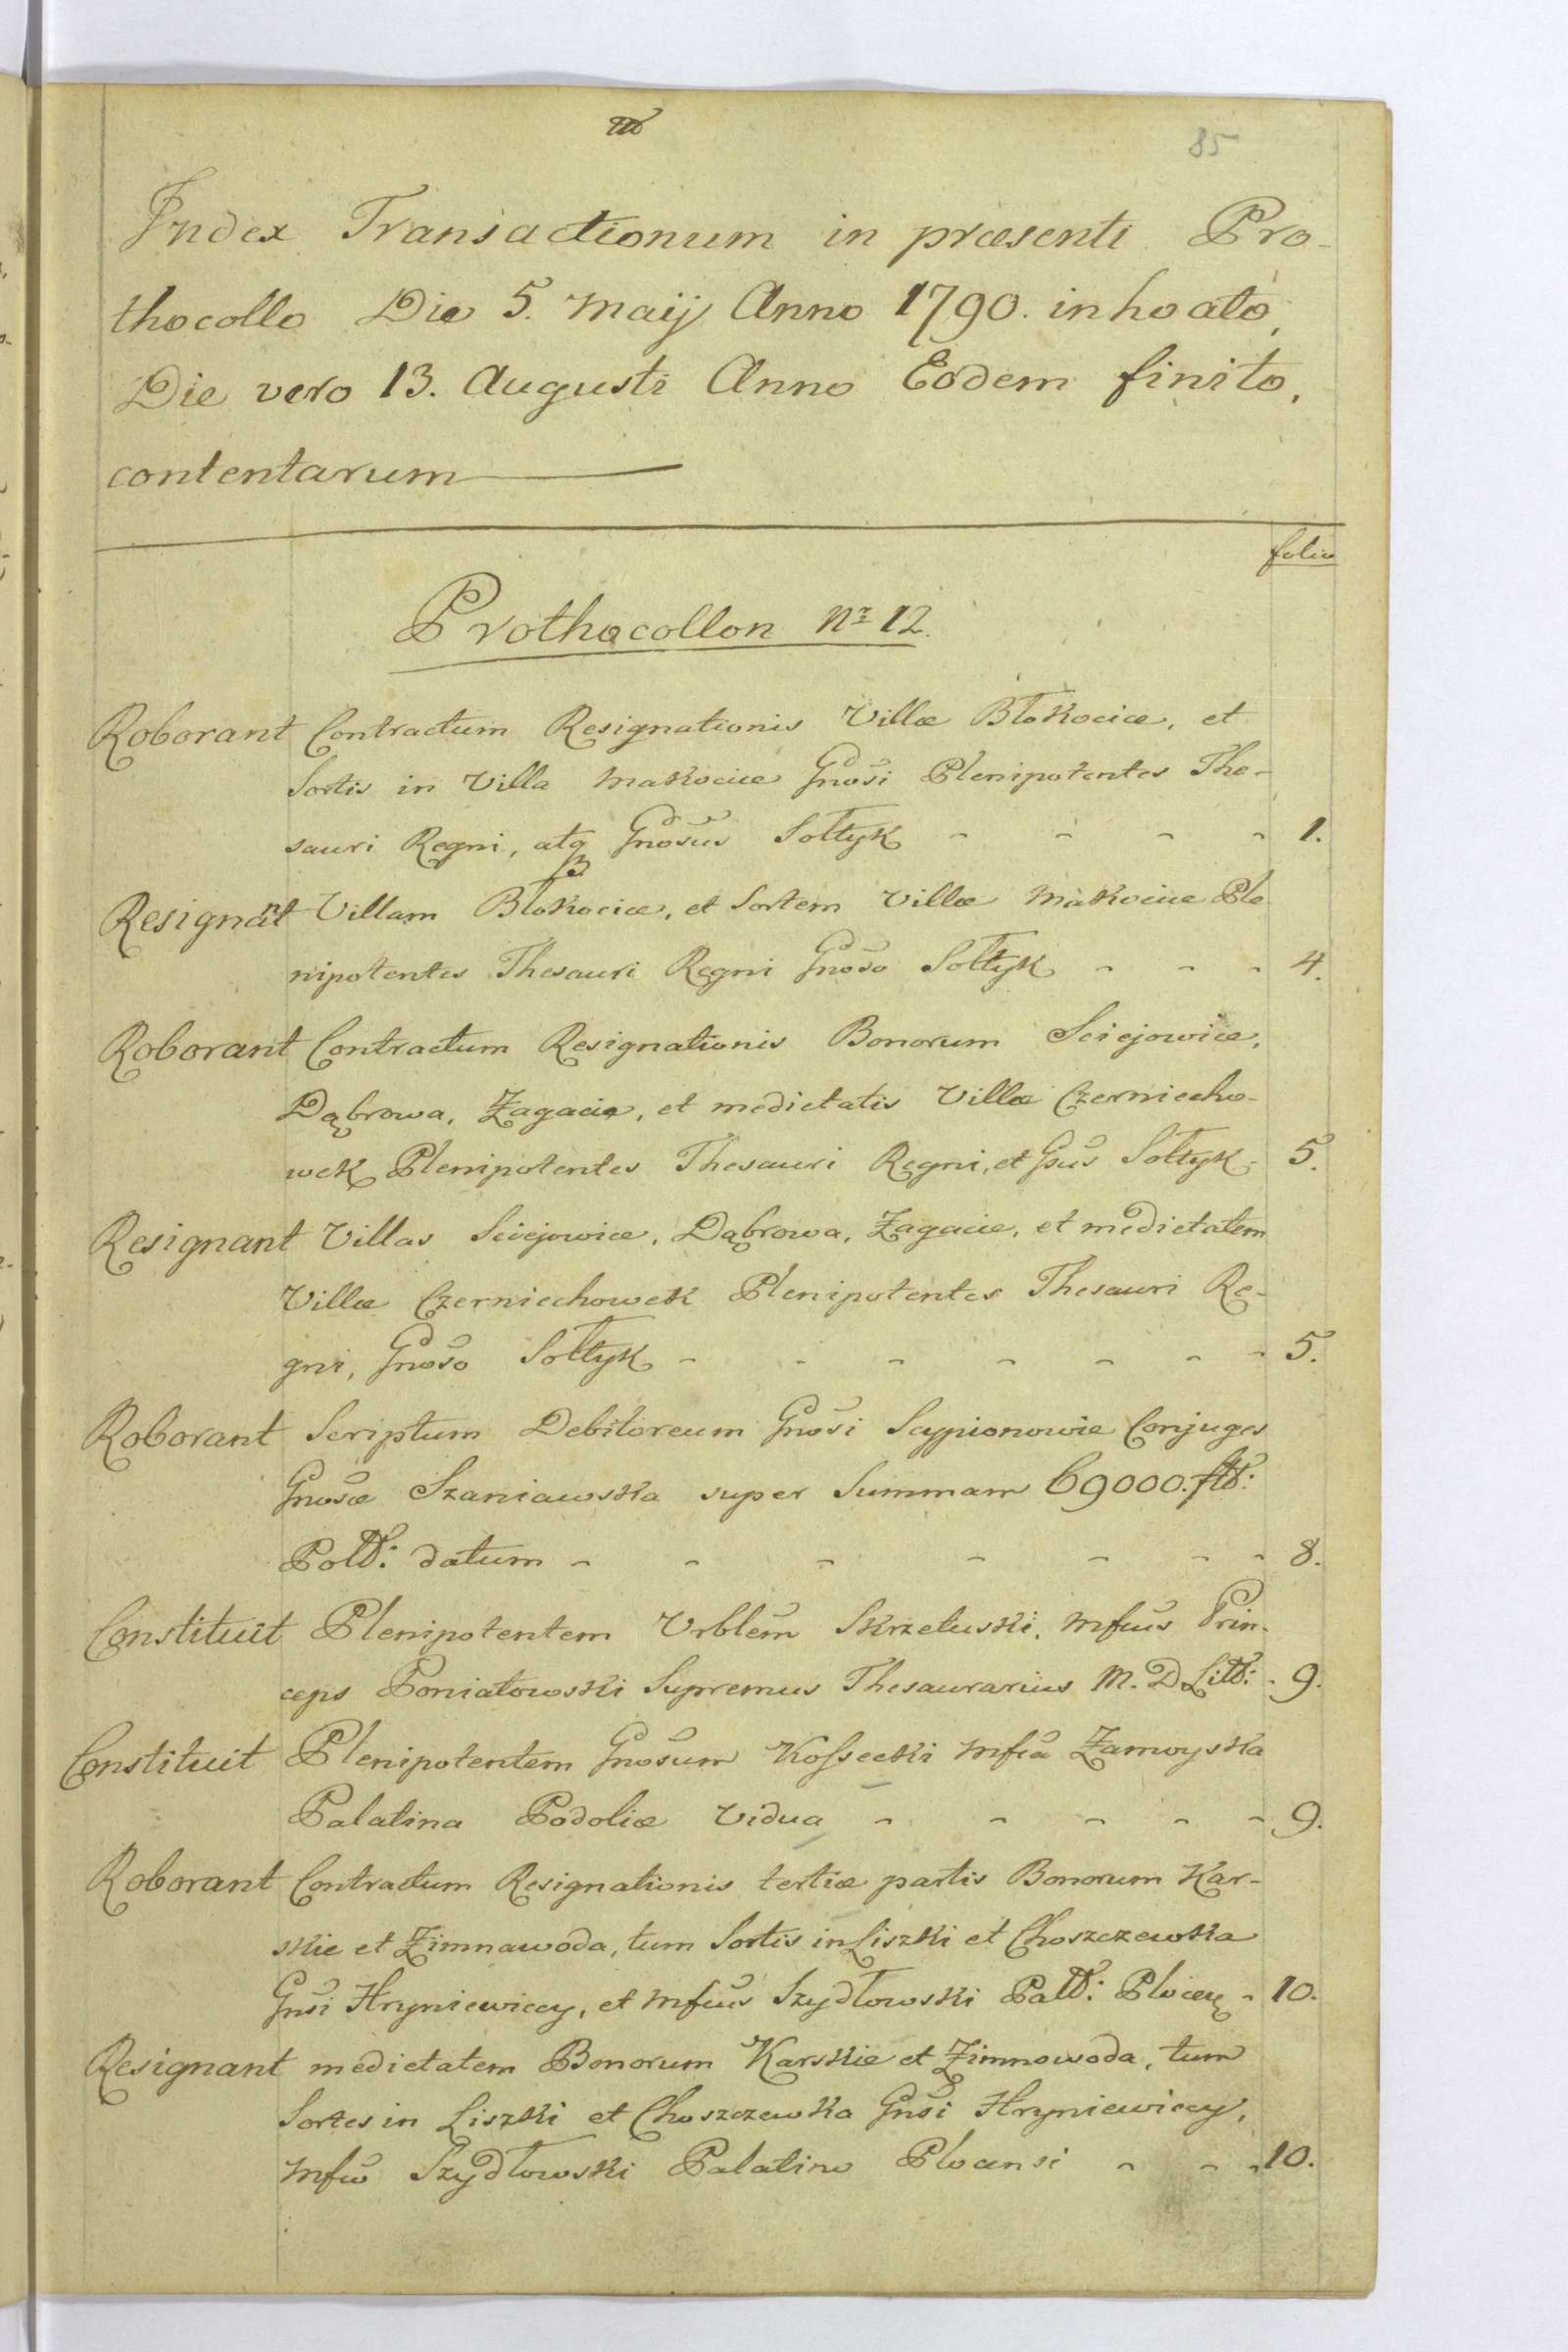 85
Index Transactionum in præsenti Pro-
thocollo Die 5. Maij Anno 1790. inhoato,
Die vero 13. Augusti Anno Eodem finito,
contentarum
folio
Prothocollon Nr 12.
Roborant Contractum Resignationis Villæ Błokocice, et
Sortis in Villa Makocice Gnosi Plenipotentes The-
sauri Regni, atq Gnosus Sołtyk - - - - 1.
Resignant Villam Błokocice, et Sortem Villæ Makocice Ple
nipotentes Thesauri Regni Gnoso Sołtyk - - - 4.
Roborant Contractum Resignationis Bonorum Sciejowice,
Dąbrowa, Zagacie, et medietatis Villæ Czerniecho-
wek Plenipotentes Thesauri Regni, et Gsus Sołtyk - 5.
Resignant Villas Sciejowice, Dąbrowa, Zagacie, et medietatem
Villæ Czerniechowek Plenipotentes Thesauri Re-
gni, Gnoso Sołtyk - - - - - - - 5.
Roborant Scriptum Debitoreum Gnosi Scypionowie Conjuges
Gnosæ Szaniawska super Summam 69000. flb:
Polb: datum - - - - - - - 8.
Constituit Plenipotentem Urblem Skrzetuski, Mfcus Prin-
ceps Poniatowski Supremus Thesaurarius M. D Litb: - 9.
Constituit Plenipotentem Gnosum Kossecki Mfca Zamoyska
Palatina Podoliæ Vidua - - - - - 9.
Roborant Contractum Resignationis tertiæ partis Bonorum Kar-
skie et Zimnawoda, tum Sortis in Liszki et Choszczewka
Gnsi Hryniewiccy, et Mfcus Szydłowski Palb: Plocen - 10.
Resignant medietatem Bonorum Karskie et Zimnowoda, tum
Sortes in Liszki et Choszczewka Gnsi Hryniewiccy,
Mfco Szydłowski Palatino Plocensi - - - 10.